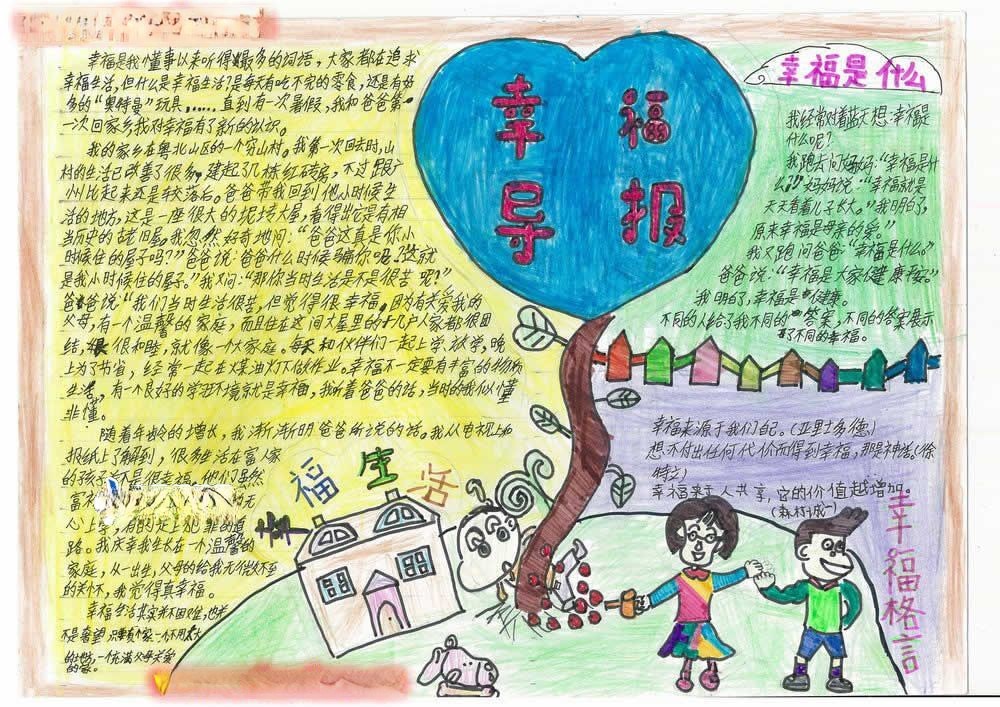 幸福导报
幸福是我懂事以来听得最多的词语，大家都在追求
幸福生活，但什么是幸福生活？是每天有吃不完的零食，还是有好
多的“奥特曼”玩具……直到有一次暑假，我和爸爸第
一次回家乡我对幸福有了新的认识。
我的家乡在粤北山区的一个穷山村。我第一次回去时，山
村的生活已改善了很多，建起了几栋红砖房，不过跟广
州比起来还是较落后。爸爸带我回到他小时候生
活的地方，这是一座很大的泥坊大屋，看得出它是有相
当历史的古老旧屋。我忽然好奇地问：“爸爸这真是你小
时候住的屋子吗？”爸爸说：“爸爸什么时候骗你呢？这就
是我小时候住的屋子。”我又问：“那你当时生活是不是很苦呢？”
爸爸说：“我们当时生活很苦，但觉得很幸福。因为有关爱我的
父母，有一个温馨的家庭，而且住在这间大屋里的十几户人家都很团
结，很和睦，就像一个大家庭。每天和伙伴们一起上学、放学，晚
上为了节省，经常一起在煤油灯下做作业。幸福不一定要有丰富的物质
生活，有一个良好的学习环境就是幸福，我听着爸爸的话，当时的我似懂
非懂。
随着年龄的增长，我渐渐明爸爸所说的话。我从电视上和
报纸上了解到，很多生活在富人家
的孩子不是很幸福。他们虽然
富裕
人上学，有的走上犯罪的道
路。我庆幸我生长在一个温馨的
家庭，从一出生，父母的给我无微不至
的关怀，我觉得真幸福。
幸福生活其实并不困难，也并
不是奢望，只要有个家，一个不用太大
的地方，一个充满父母关爱
的家。
幸福生活
幸福是什么
我经常对着蓝天想：幸福是
什么呢？
我跑去问妈妈：“幸福是什
么？”妈妈说：“幸福就是
天天看着儿子长大。”我明白了，
原来幸福是母亲的爱。
我又跑问爸爸：“幸福是什么。”
爸爸说：“幸福是大家健康平安。”
我明白了，幸福是健康。
不同的人给了我不同的答案，不同的答案展示
了不同的幸福。
幸福来源于我们自己。（亚里士多德）
想不付出任何代价而得到幸福，那是神话。（徐
特立）
幸福来于人共享，它的价值越增加。
（森村诚一）
幸福格言